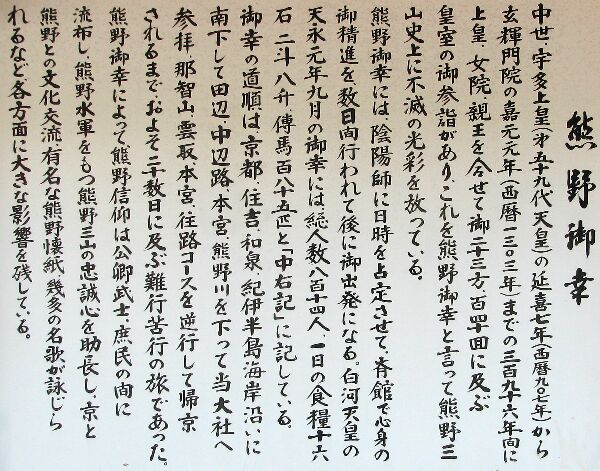 熊野御幸
中世、宇多上皇(才五十九代天皇)の延喜七年(西暦九〇七年)から
玄輝門院の嘉元元年(西暦一三〇三年)までの三百九十六年间に
上皇、女院、親王を合せて御二十三方、百四十回に及ぶ
皇室の御参詣があり、これを熊野御幸と言って熊野三
山史上に不滅の光彩を放っている。
熊野御幸には、陰陽師に日時を占定させて、斉館で心身の
御精進を数日间行われて後に御出発になる。白河天皇の
天永元年九月の御幸には、総人数八百十四人、一日の食糧十六
石二斗八升、傳馬百八十五匹と「中右記」に記している。
御幸の道順は、京都、住吉、和泉、紀伊半島海岸沿いに
南下して田辺、中辺路、本宮、熊野川を下って当大社へ
参拝、那智山、雲取、本宮、往路コースを逆行して帰京
されるまで、およそ二十数日に及ぶ難行苦行の旅であった。
熊野御幸によって熊野信仰は公卿、武士、庶民の间に
流布し、熊野水軍をもつ熊野三山の忠誠心を助長し、京と
熊野との文化交流、有名な熊野懐紙、幾多の名歌が詠じら
れるなど各方面に大きな影響を残している。